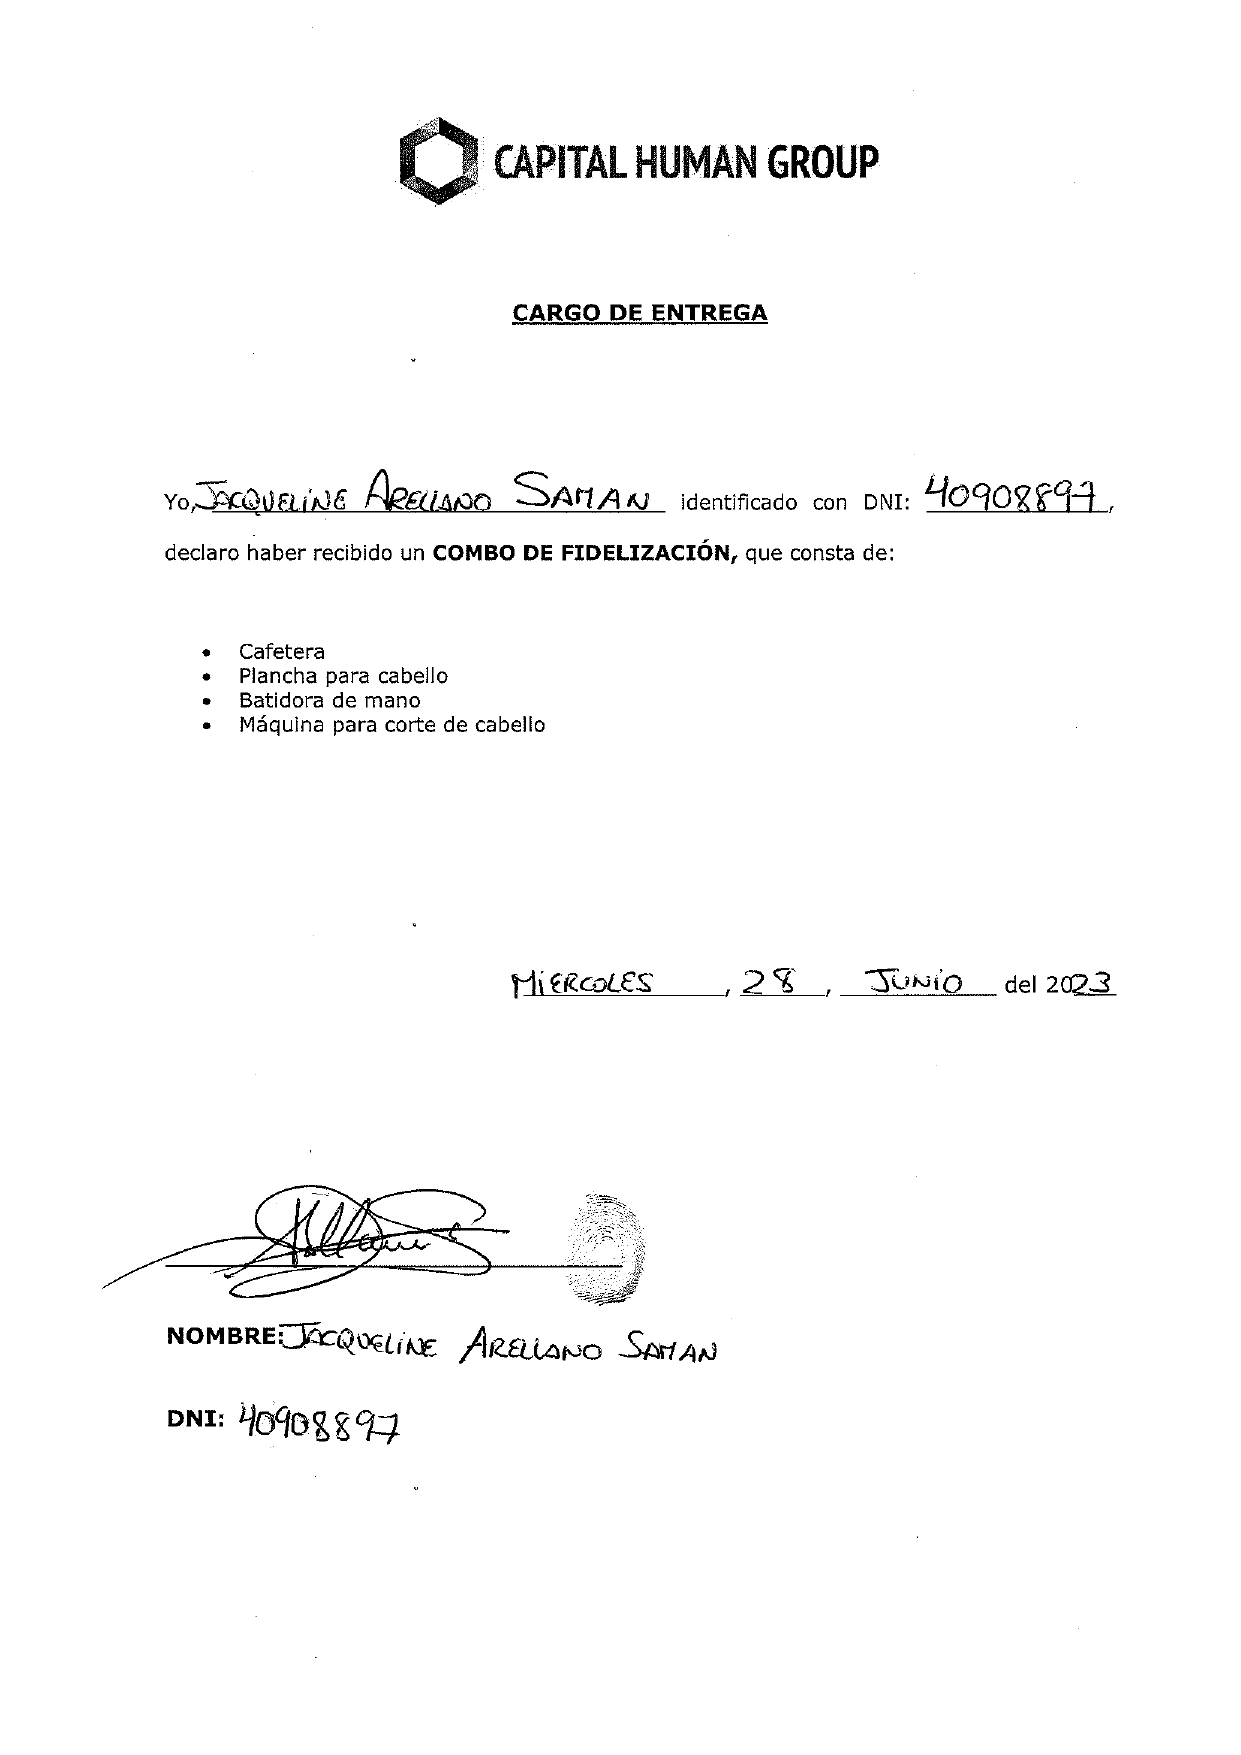 CAPITAL HUMAN GROUP
CARGO DE ENTREGA
Yo, JACQUELINE ARELLANO SAMAN identificado con DNI: 40908897,
declaro haber recibido un COMBO DE FIDELIZACIÓN, que consta de:
• Cafetera
• Plancha para cabello
• Batidora de mano
• Máquina para corte de cabello
MiERCOLES , 28 , JUNiO del 2023
NOMBRE: JACQUELiNE ARELLANO SAMAN
DNI: 40908897